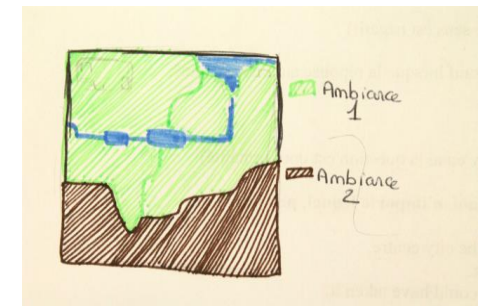 Ambiance
1
Ambiance
2